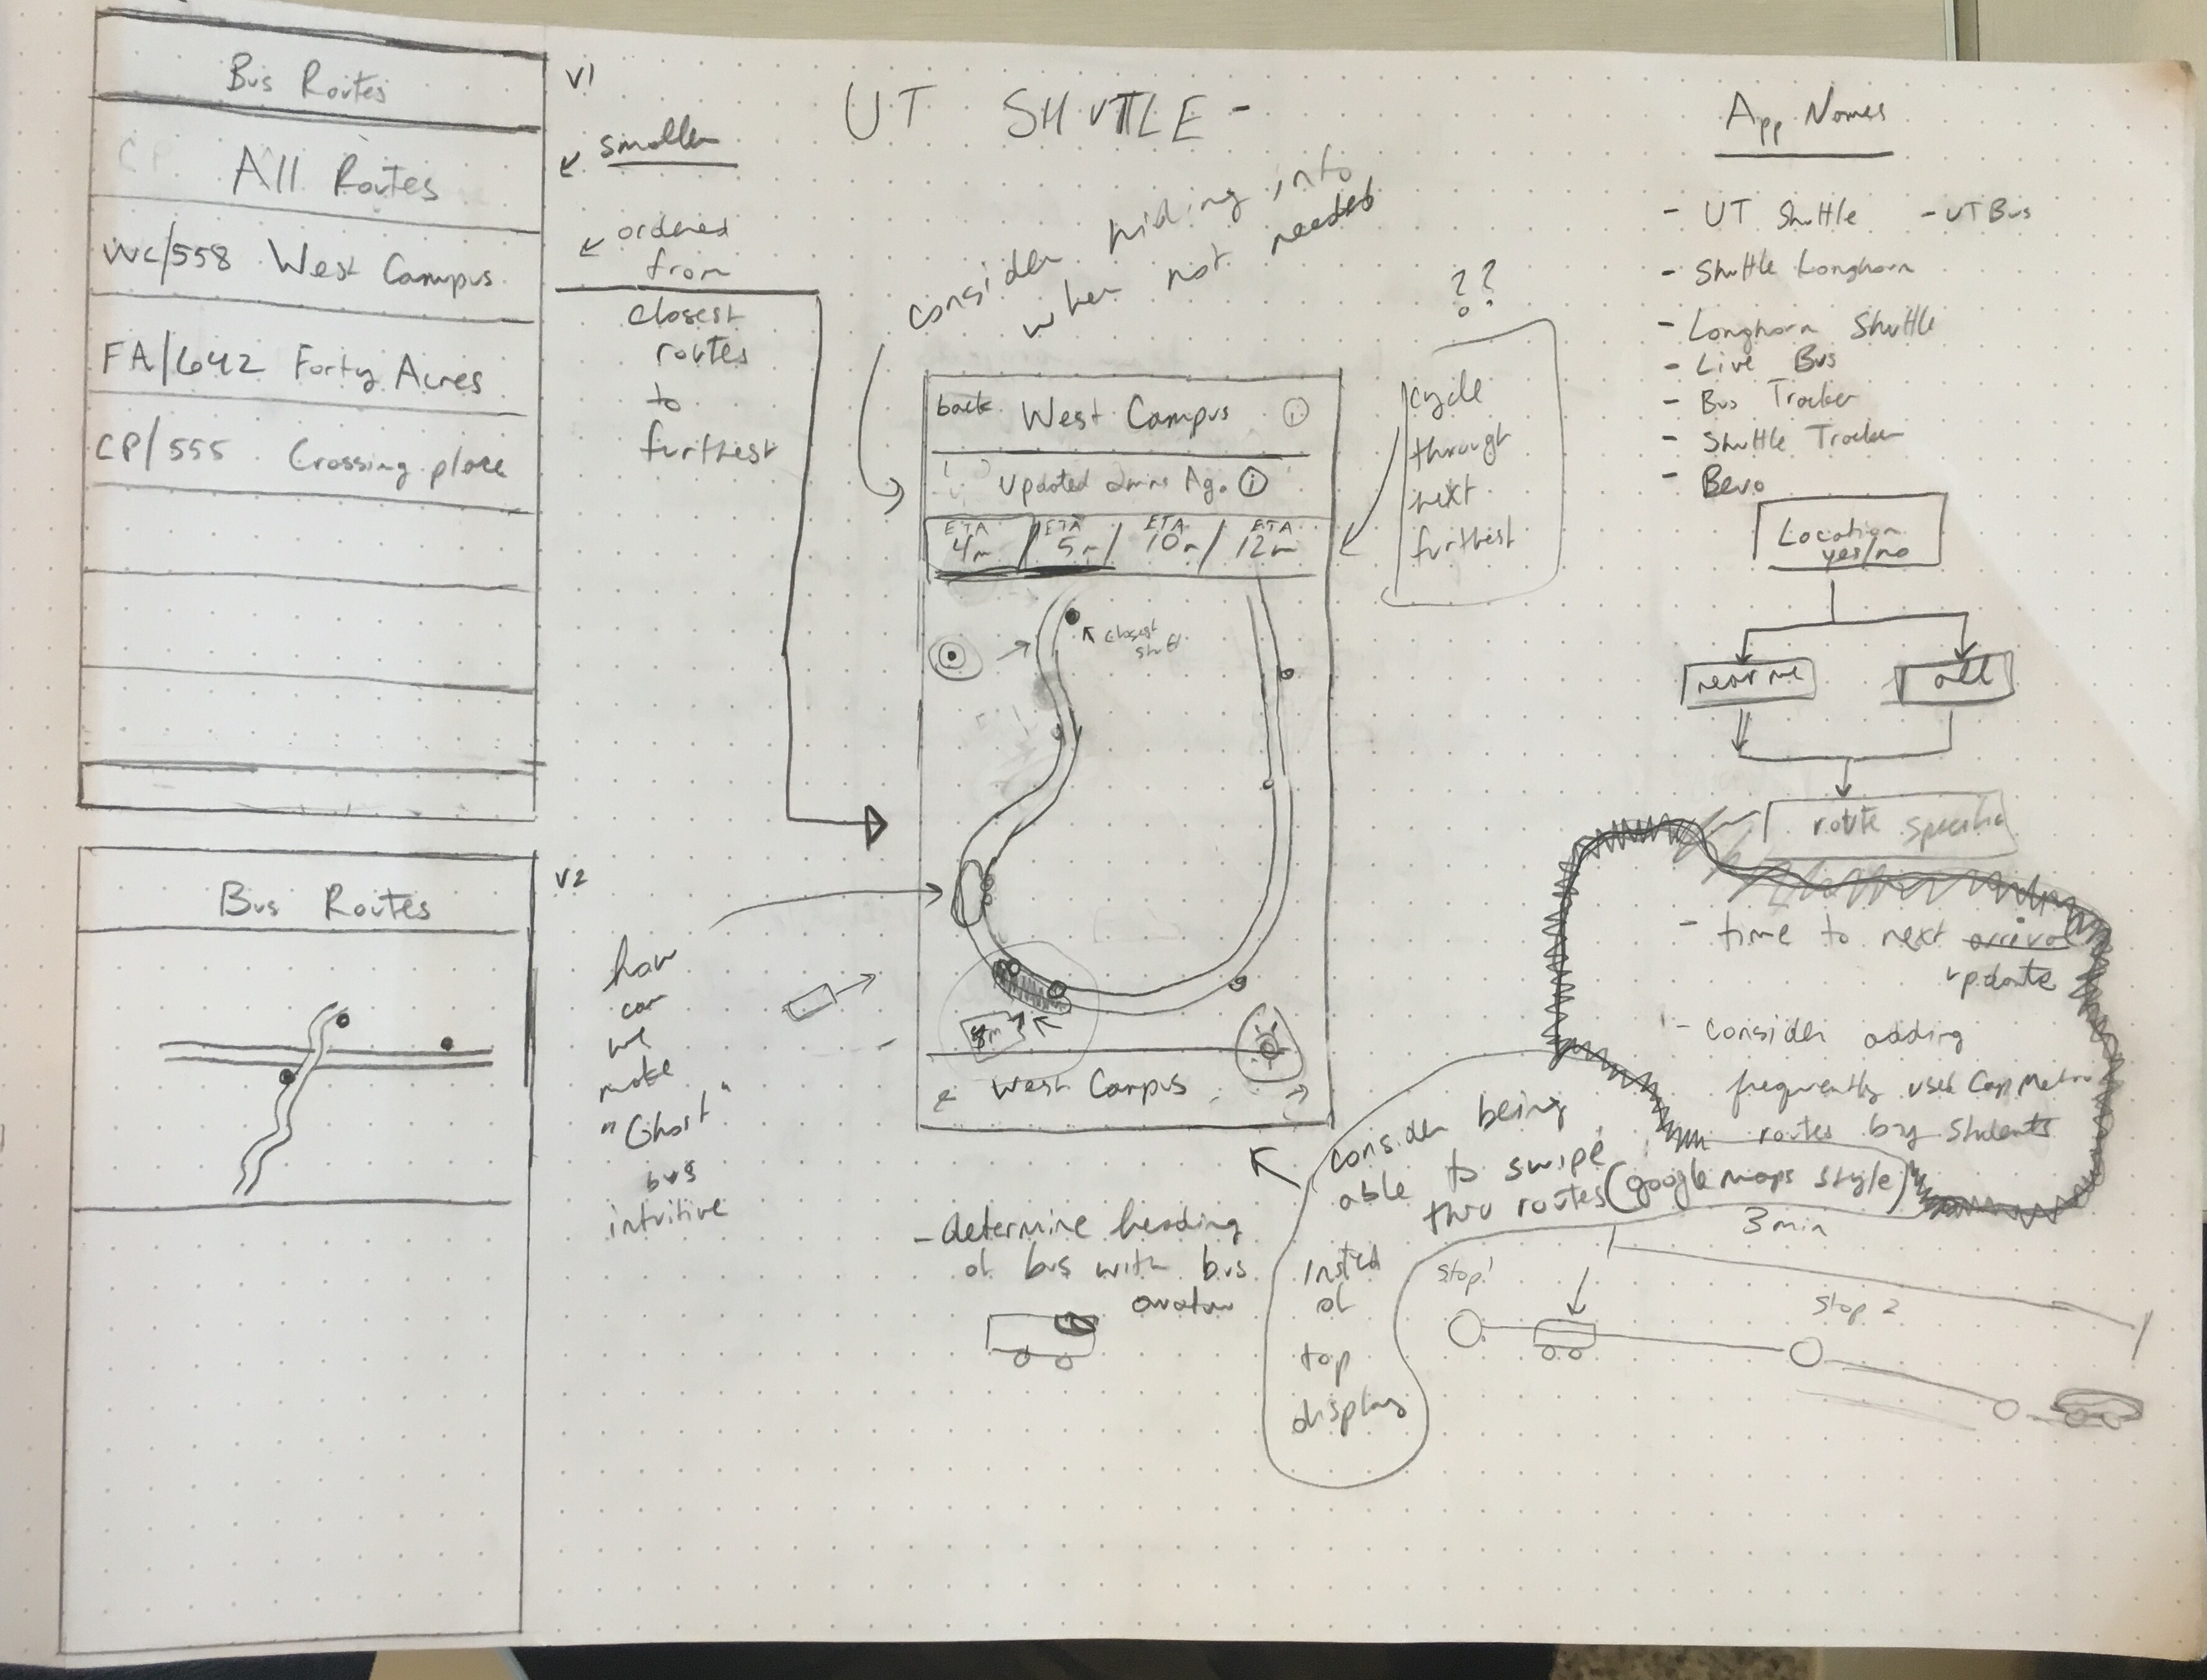 Bus Routes
All Routes
WC/558 West Campus
FA/642 Forty Acres
CP/555 Crossing place
V1
smaller
ordered
from
closest
routes
to
furthest
Bus Routes
V2
how
can
we
make
"Ghost"
bus
intuitive
UT SHUTTLE -
consider hiding info
when not needed
back West Campus i
Updated 2mins Ago i
ETA ETA ETA ETA
4m / 5m / 10m / 12m
closest
West Campus
??
cycle
through
next
furthest
- determine heading
of bus with bus
avatar
consider being
able to swipe
thru routes (google maps style)
insted
of
top
display
App Names
- UT Shuttle - UT Bus
- Shuttle Longhorn
- Longhorn Shuttle
- Live Bus
- Bus Tracker
- Shuttle Tracker
- Bevo
Location
yes/no
near me
all
route specific
- time to next arrival
update
- consider adding
frequently used CapMetro
routes by students
3 min
Stop 1
Stop 2